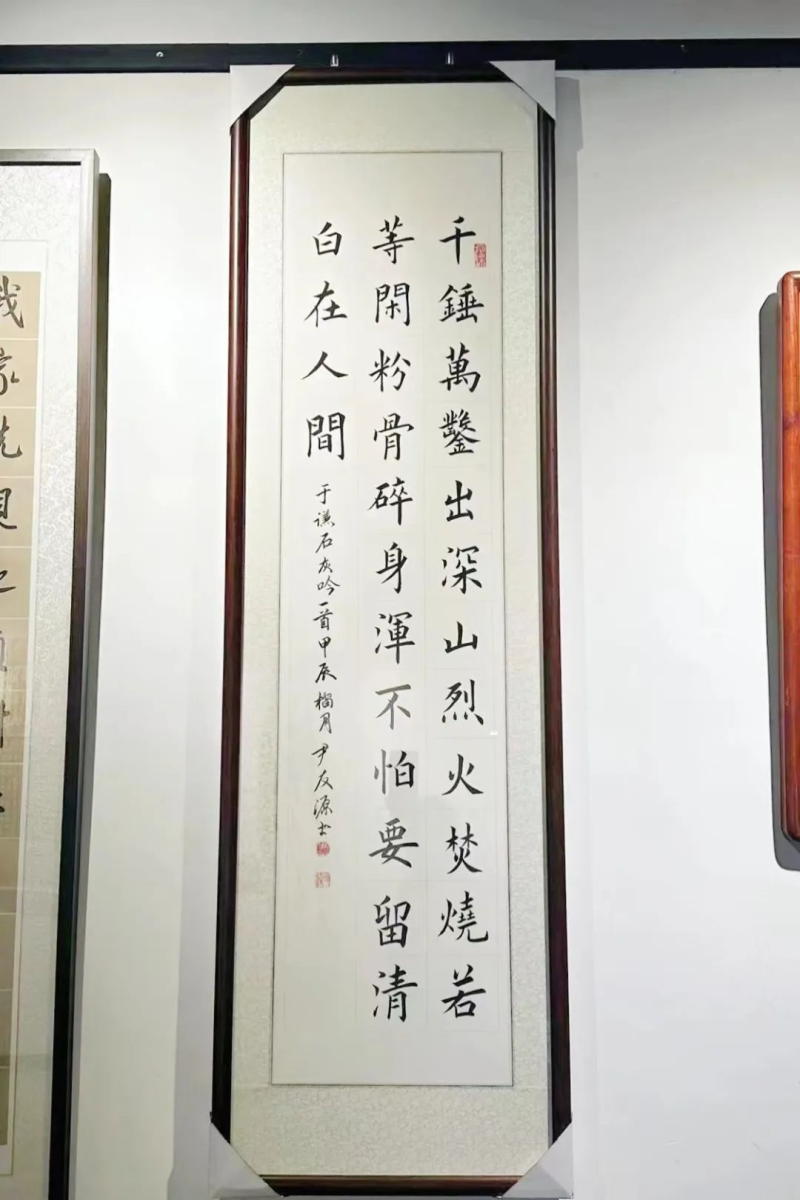 千錘萬鑿出深山烈火焚燒若
等閑粉骨碎身渾不怕要留清
白在人間
于谦石灰吟一首甲辰榴月尹友源书